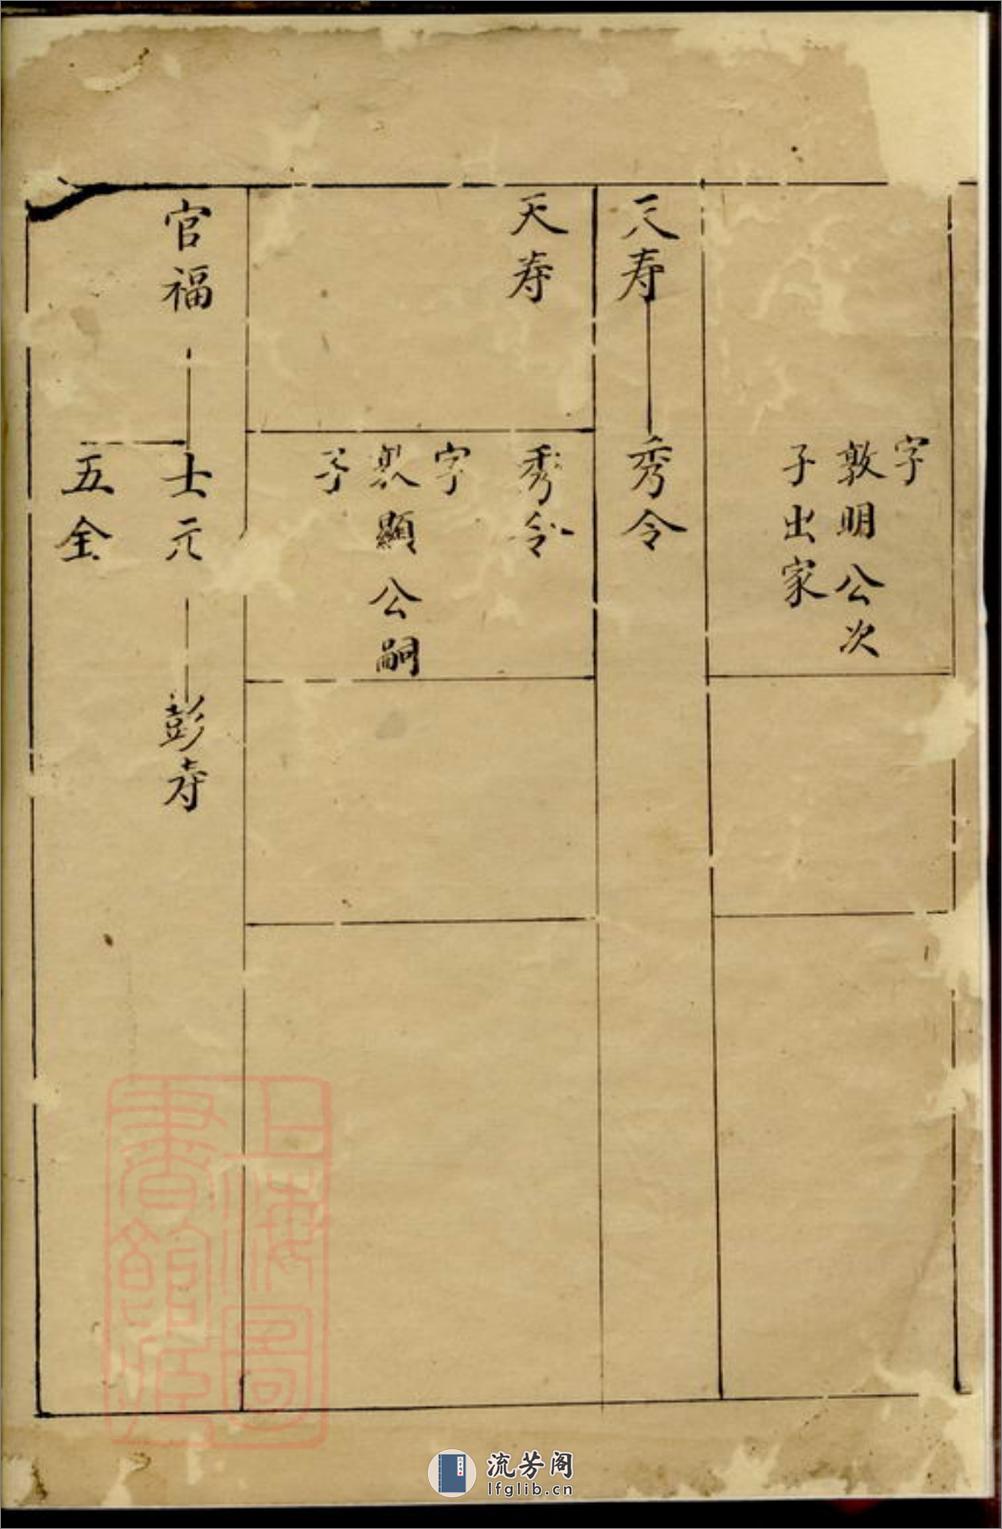 字
敦明公次
子出家
天寿
秀令
天寿
秀令
字
顯公嗣
子
官福
士元
彭寿
五全
上海圖
書館藏
流芳阁
lfglib.cn